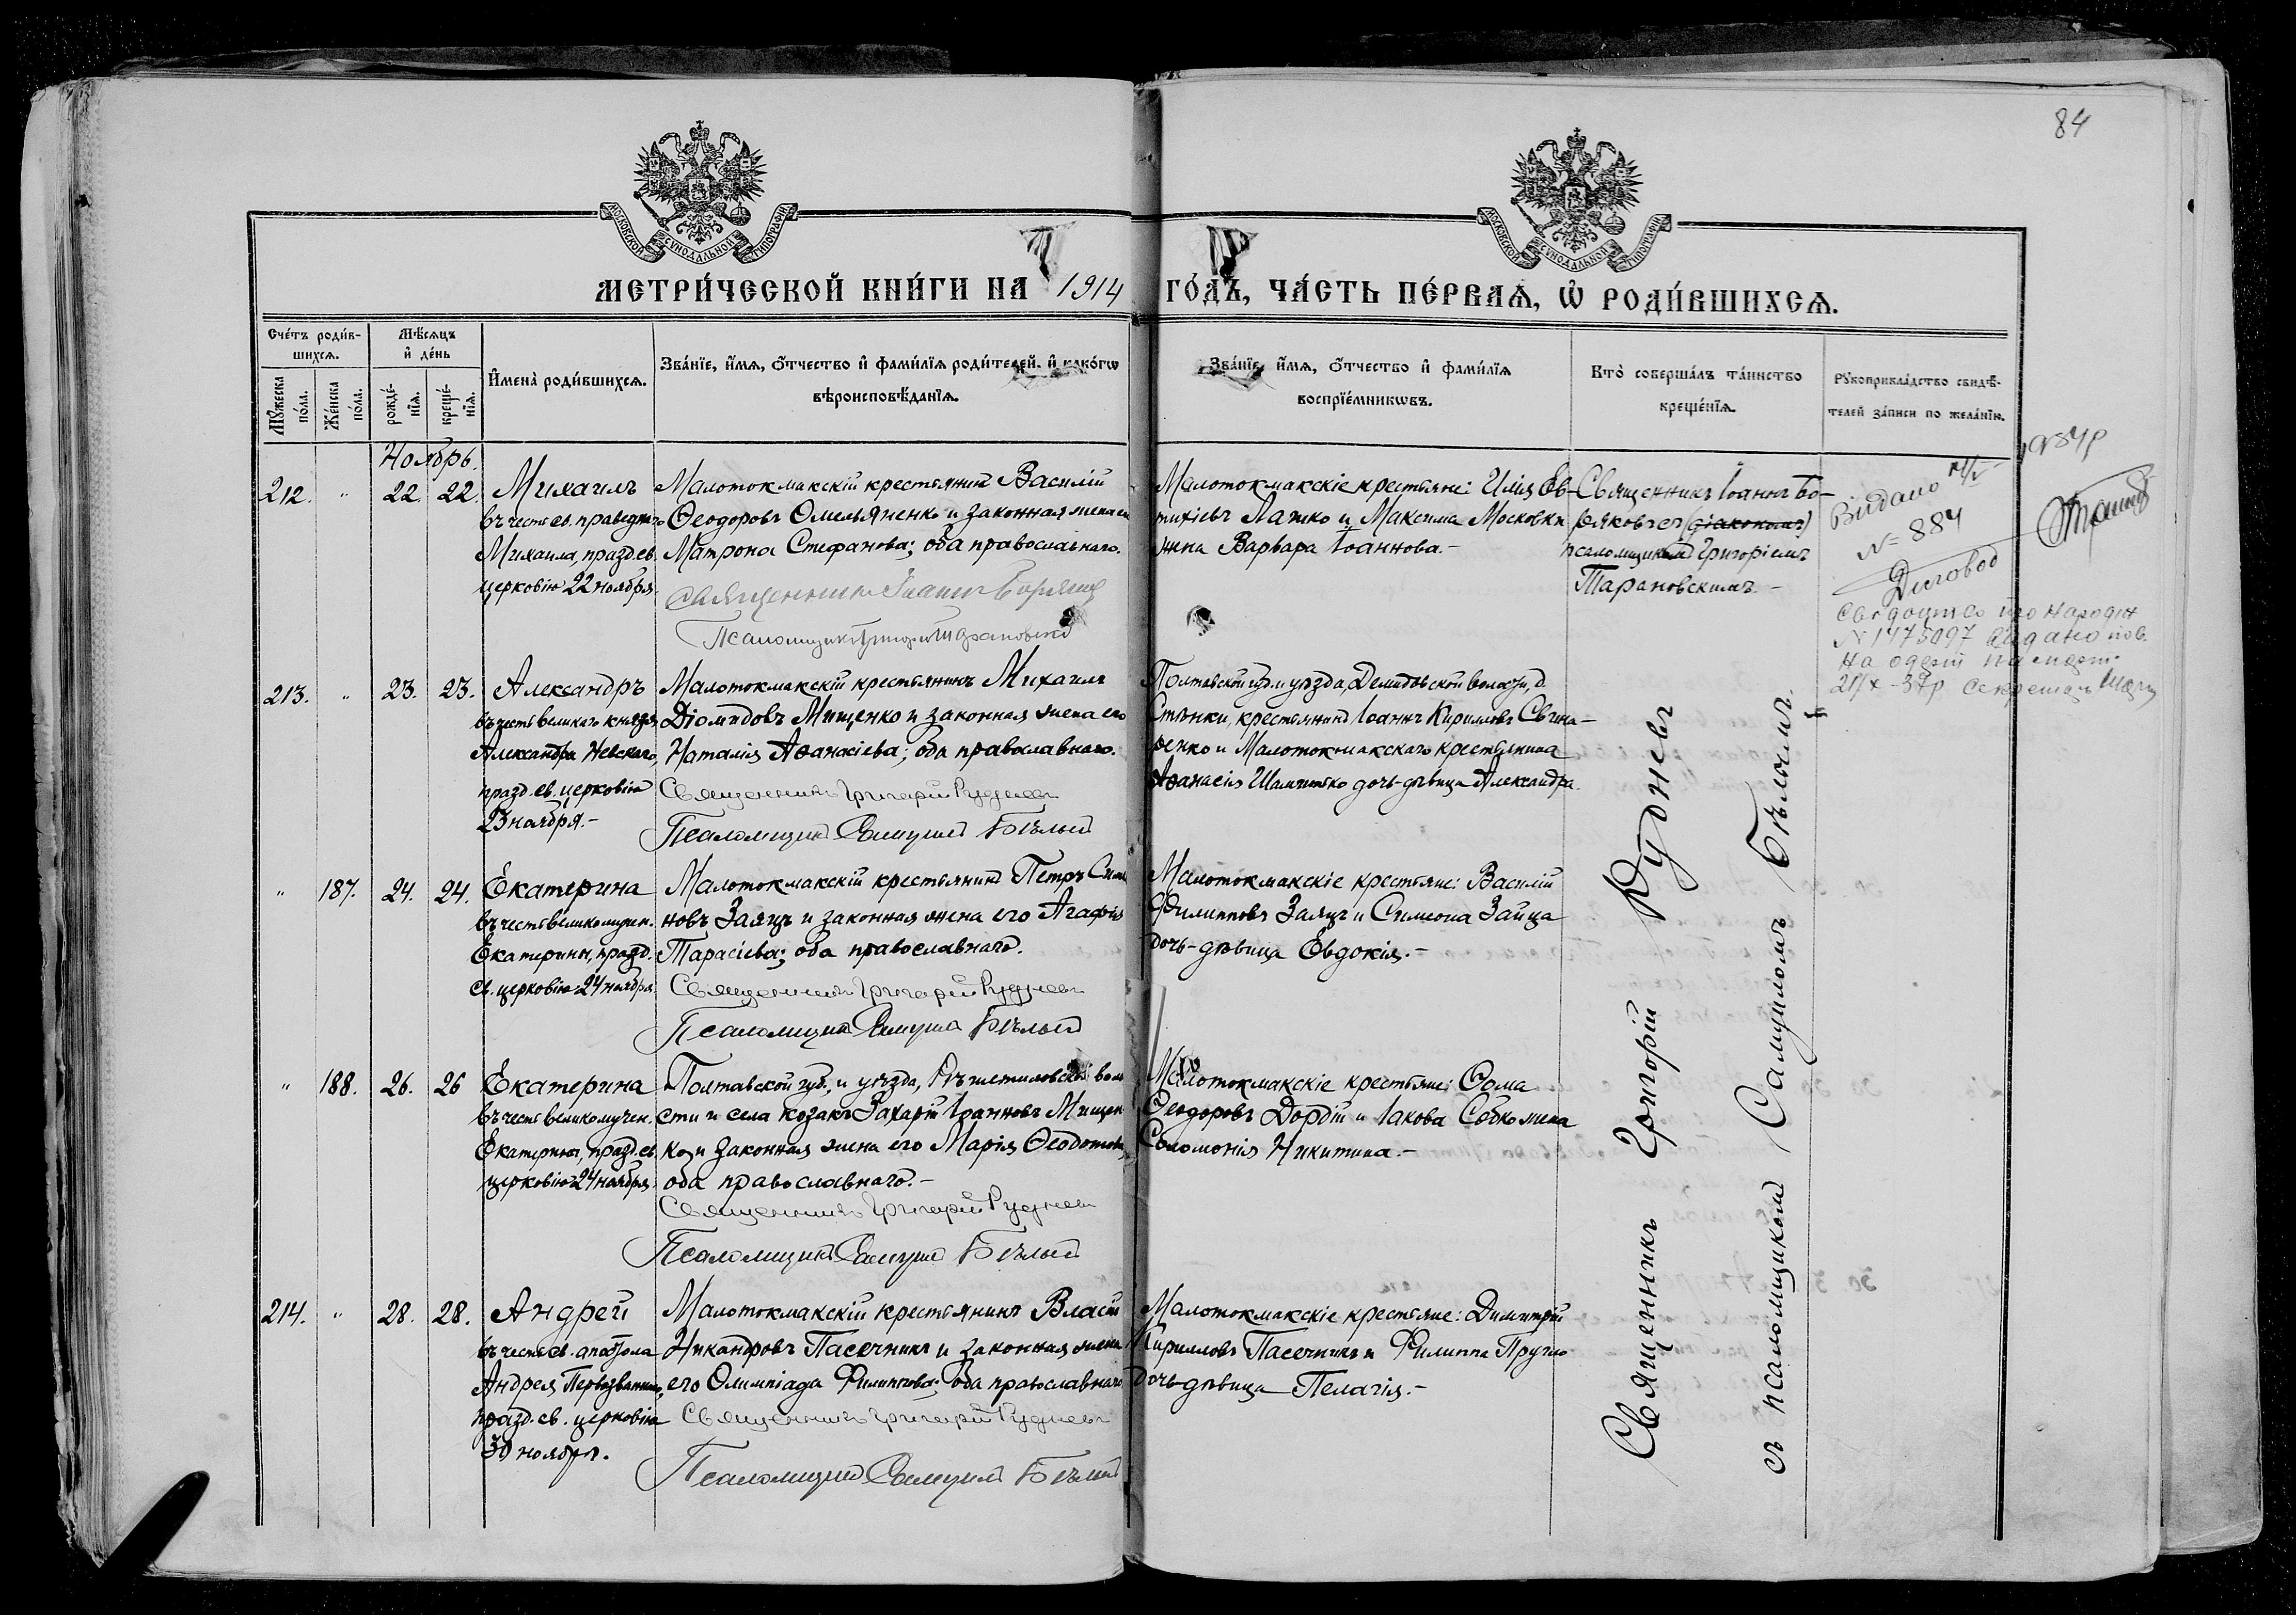 84
МОСКОВСКОЙ СѴНОДАЛЬНОЙ ТИПОГРАФІИ
МОСКОВСКОЙ СѴНОДАЛЬНОЙ ТИПОГРАФІИ
МЕТРИ́ЧЕСКОЙ КНИ́ГИ НА 1914 ГО́ДЪ, ЧА́СТЬ ПЕ́РВАѦ, Ѡ҆ РОДИ́ВШИХСѦ.
Сче́тъ роди́в-
шихсѧ.
Мꙋ́жеска по́ла.
Же́нска по́ла.
Мѣ́сѧцъ
и҆ де́нь
рожде́-нїѧ.
креще́-нїѧ.
И҆мена̀ роди́вшихсѧ.
Зва́нїе, и҆́мѧ, ѻ҆́тчество и҆ фами́лїѧ роди́телей, и҆ како́гѡ
вѣроисповѣ́данїѧ.
Зва́нїе, и҆́мѧ, ѻ҆́тчество и҆ фами́лїѧ
воспрїе́мникѡвъ.
Кто̀ соверша́лъ та́инство
креще́нїѧ.
Рꙋкоприкла́дство свидѣ́-
телей за́писи по жела́нїю.
Ноябрь.
212. " 22. 22.
Михаилъ
въ честь св. праведнаго
Михаила, празд. св.
церковію 22 ноября.
Малотокмакскій крестьянинъ Василій
Ѳеодоровъ Омельяненко и законная жена его
Матрона Стефанова; оба православнаго.
Священникъ Іоаннъ
Псаломщикъ Григорій Тарановскій
Малотокмакскіе крестьяне: Илія Ев-
тихіевъ Лашко и Максима Московки
жена Варвара Іоаннова.-
Священникъ Іоаннъ Бо-
съ (діакономъ)
псаломщикомъ Григоріемъ
Тарановскимъ.-
Видано
N= 884
Свідоцтво про народж
N 1475097 видано пов.
на одержання
21/X-37р Секретарь
213. " 23. 23.
Александръ
въ честь великаго князя
Александра Невскаго,
празд. св. церковію
23 ноября.-
Малотокмакскій крестьянинъ Михаилъ
Діомидовъ Мищенко и законная жена его
Наталія Аѳанасіева; оба православнаго.
Священникъ Григорій Рудневъ
Псаломщикъ Самуилъ Бѣлый
Полтавской губ. и уѣзда, Демидовской волости, д.
Стѣнки, крестьянинъ Іоаннъ Кирилловъ Свина-
ренко и Малотокмакскаго крестьянина
Аѳанасія дочь-дѣвица Александра.
" 187. 24. 24.
Екатерина
въ честь великомучен.
Екатерины, празд.
св. церковію 24 ноября.
Малотокмакскій крестьянинъ Петръ Симо
новъ Заяцъ и законная жена его Агафія
Тарасіева; оба православнаго.
Священникъ Григорій Рудневъ
Псаломщикъ Самуилъ Бѣлый
Малотокмакскіе крестьяне: Василій
Филипповъ Заяцъ и Симеона Зайца
дочь-дѣвица Евдокія.-
" 188. 26. 26
Екатерина
въ честь великомучен.
Екатерины, празд. св.
церковію 24 ноября.
Полтавской губ., и уѣзда, Рѣшетиловской воло
сти и села козакъ Захарій Іоанновъ Мищен
ко и законная жена его Марія Ѳеодотова;
оба православнаго.-
Священникъ Григорій Рудневъ
Псаломщикъ Самуилъ Бѣлый
Малотокмакскіе крестьяне: Ѳома
Ѳеодоровъ Дордій и Іакова Собко жена
Соломонія Никитина.-
214. " 28. 28.
Андрей
въ честь св. апостола
Андрея Первозваннаго,
празд. св. церковію
30 ноября.
Малотокмакскій крестьянинъ Власій
Никандровъ Пасечникъ и законная жена
его Олимпіада Филиппова; оба православнаго.
Священникъ Григорій Рудневъ
Псаломщикъ Самуилъ Бѣлый
Малотокмакскіе крестьяне: Димитрій
Кирилловъ Пасечникъ и Филиппа
дочь-дѣвица Пелагія.-
Священникъ Григорій Рудневъ
съ псаломщикомъ Самуиломъ Бѣлымъ.